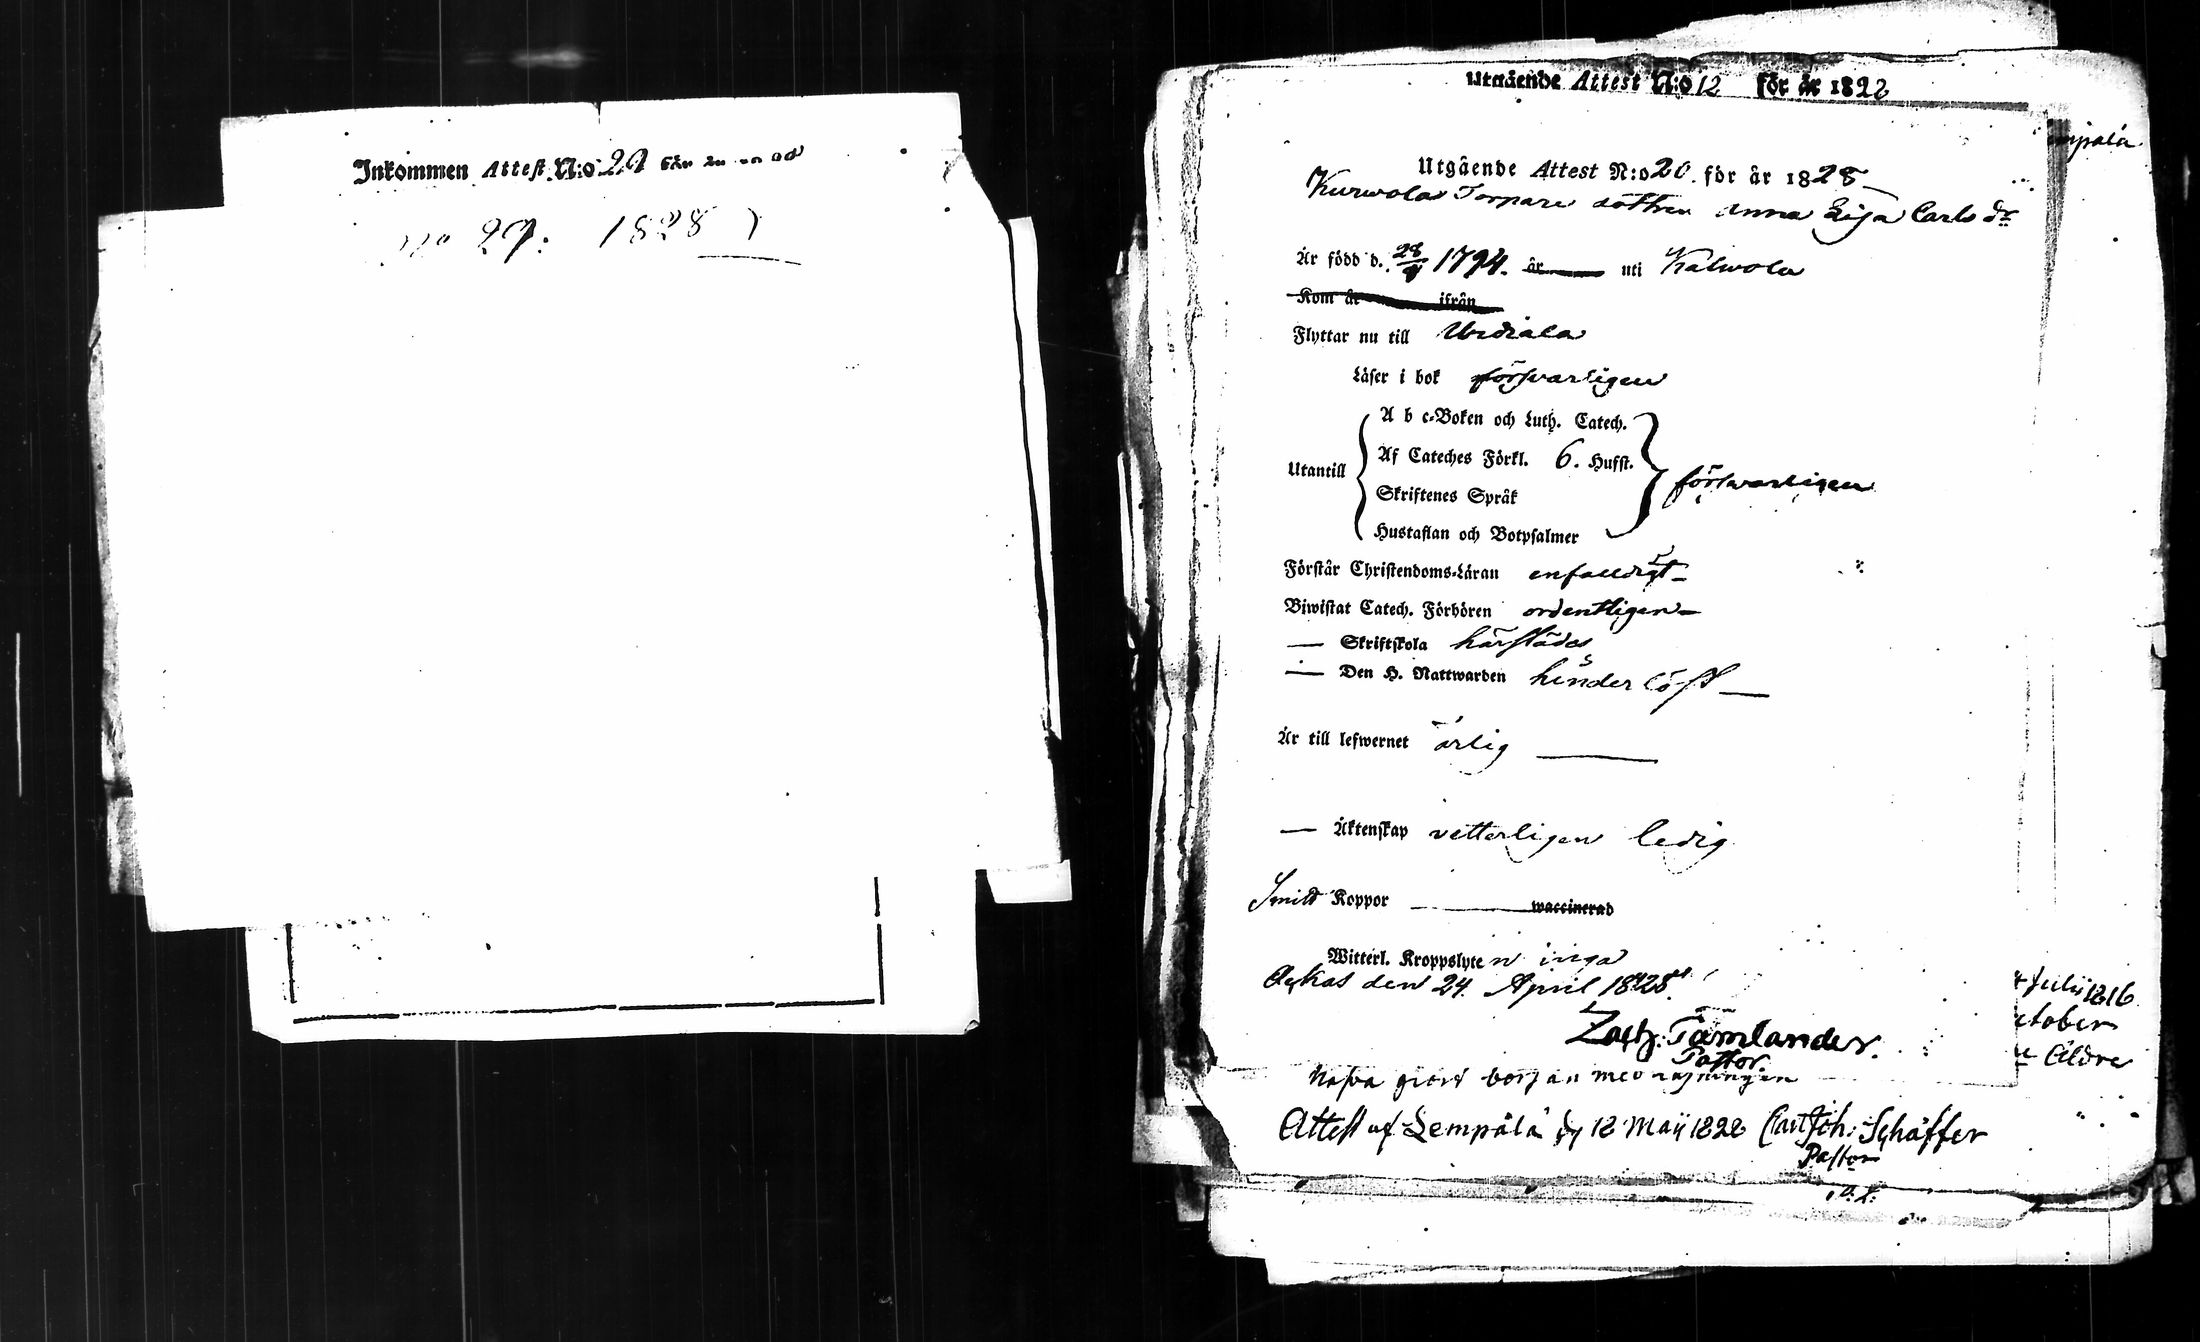 Inkommen Attest N:o 29
No 29: 1828
Utgående Attest N:o 12 för år 1828
Utgående Attest N:o 20. för år 1828
Torpare dottren Anna Lisa Carls dr
Är född d. 28/9 1794. år uti Kalwola
Kom år ifrån
Flyttar nu till Urdiala
Läser i bok förswarligen
Utantill
A b c-Boken och Luth. Catech.
Af Cateches Förkl. 6. Hufst.
Skriftenes Språk
Hustaflan och Botpsalmer
förswarligen
Förstår Christendoms-Läran enfaldigt
Biwistat Catech. Förhören ordentligen
— Skriftskola härstädes
— Den H. Nattwarden hinderlöst
Är till lefwernet ärlig
— Äktenskap vetterligen ledig
Koppor waccinerad
Witterl. Kroppslyten inga
den 24. April 1828.
Zach. Tamlander.
Pastor.
Attest af Lempälä 18 Maij 1828 Carl Joh: Schäffer
Pastor
mpälä
Julii 1816
ctober
Äldre